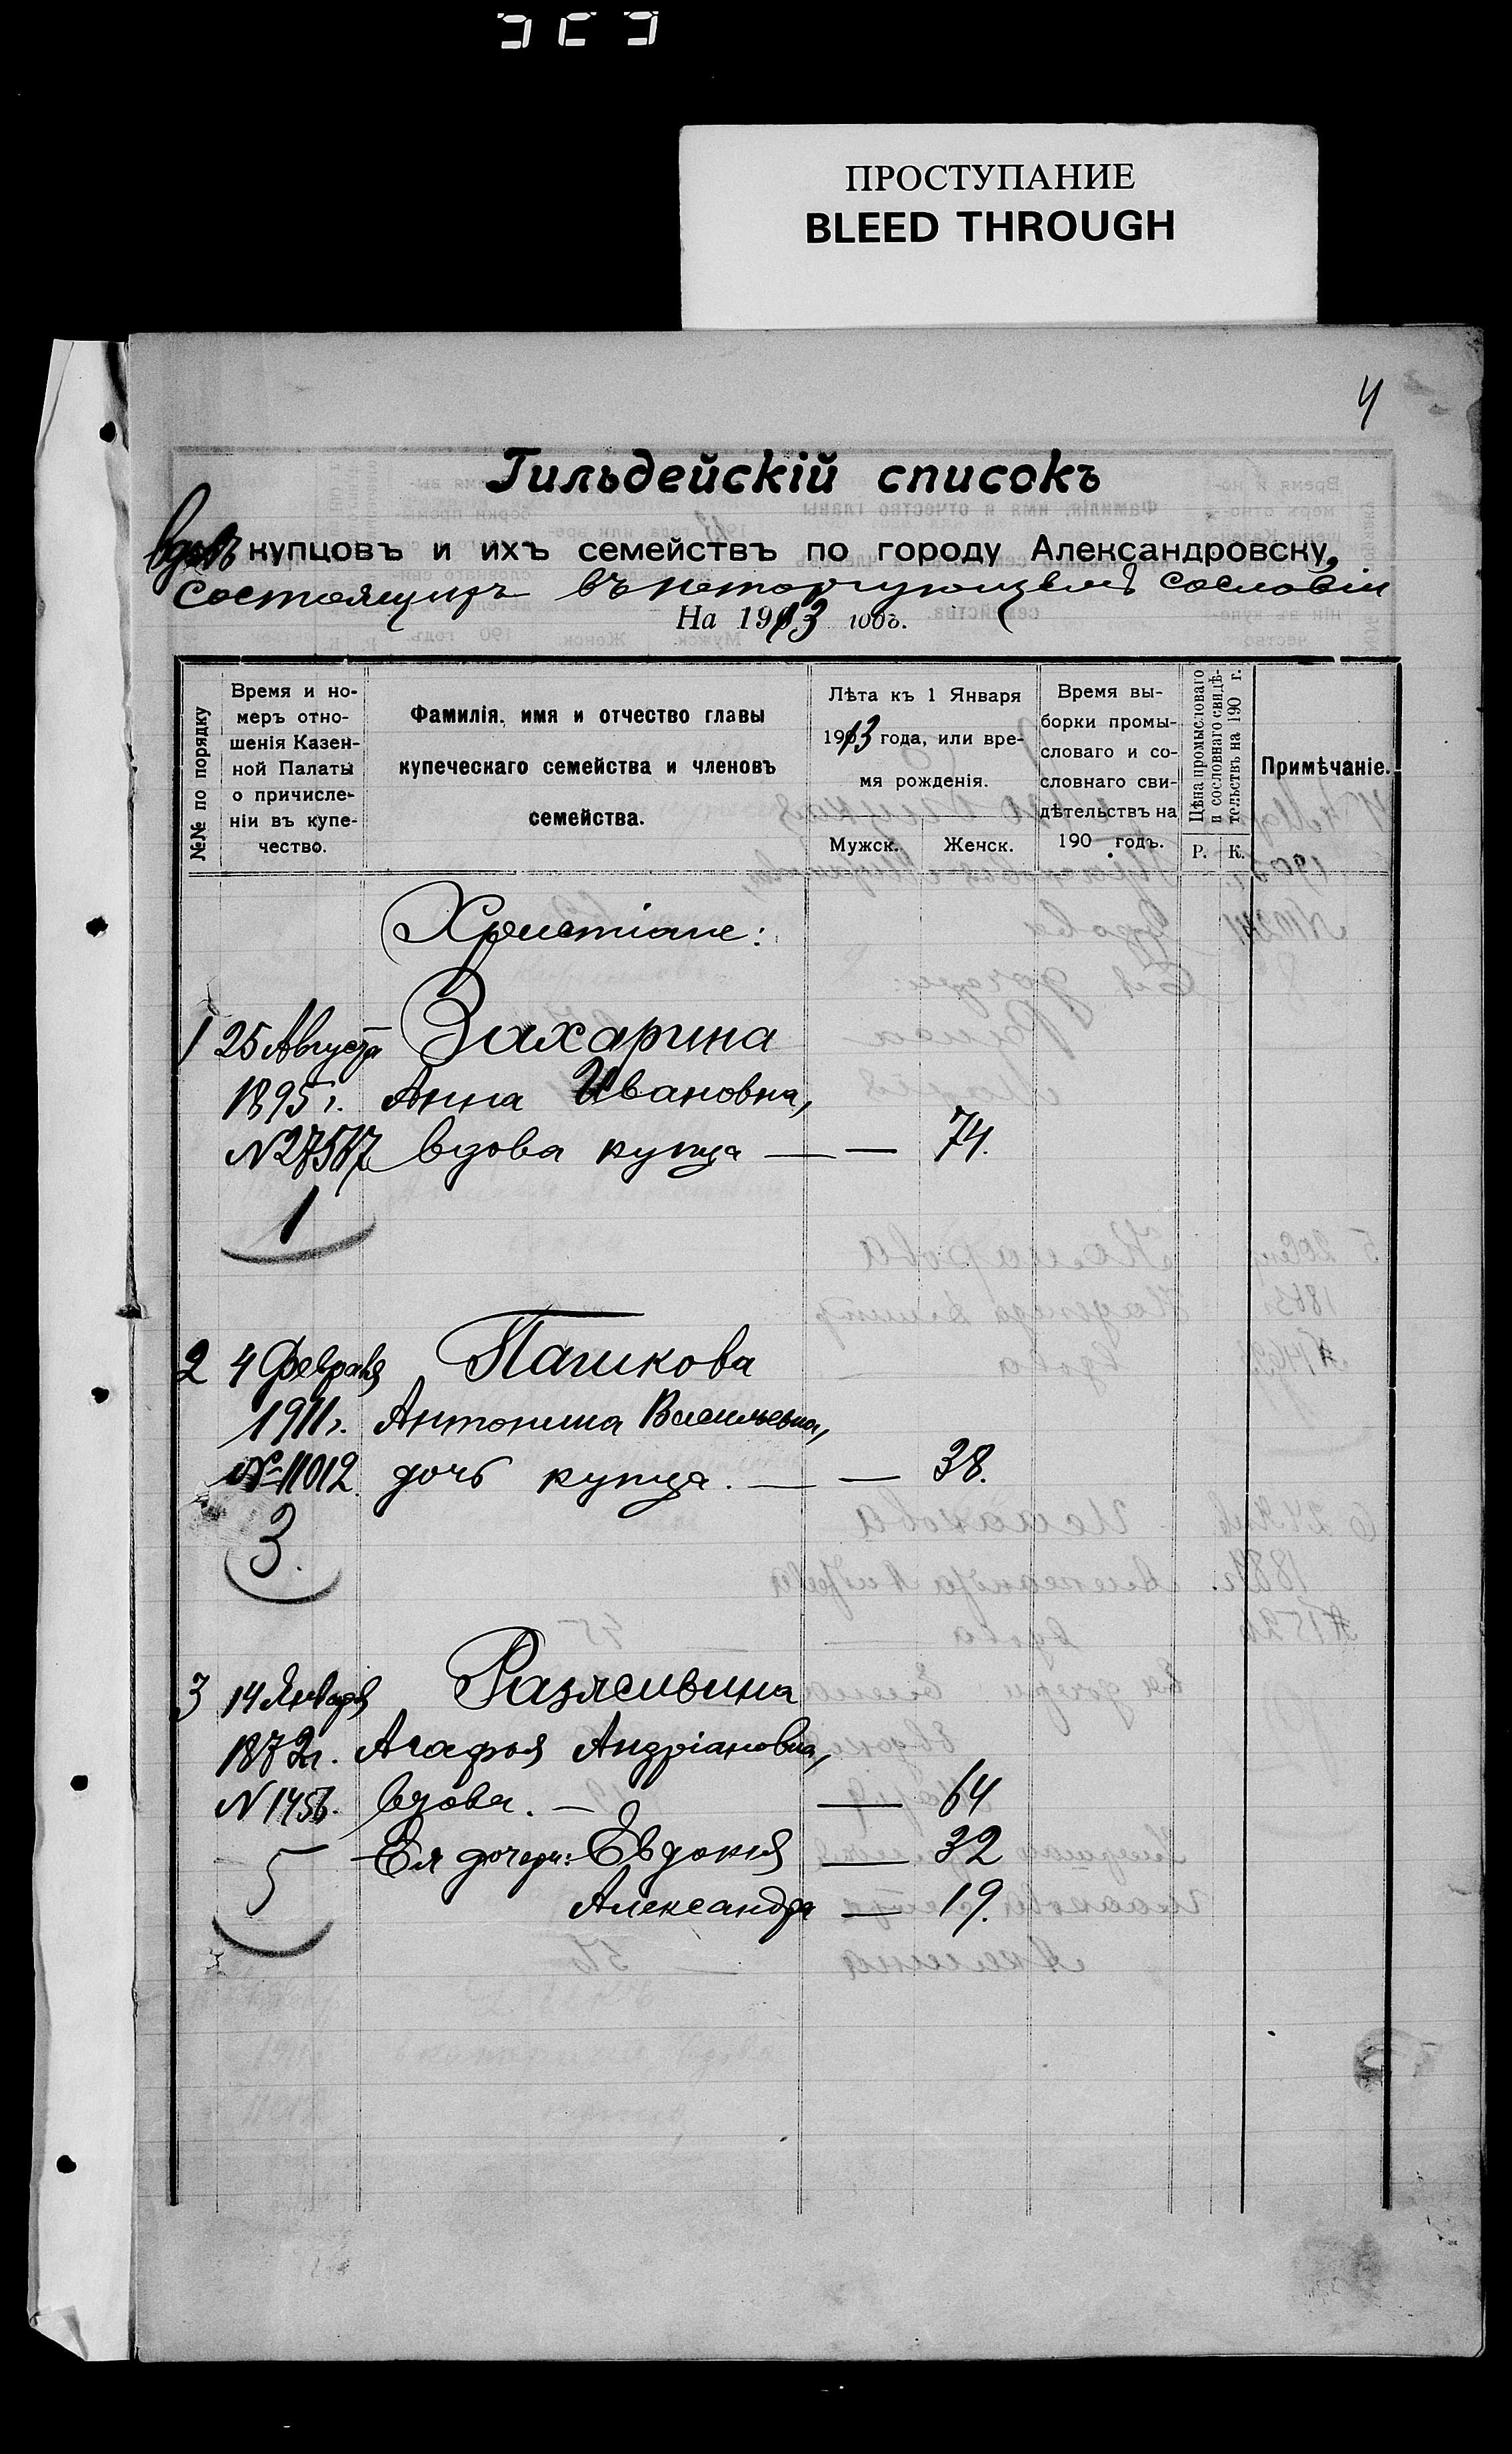 ПРОСТУПАНИЕ
BLEED THROUGH
4
Гильдейскій списокъ
вдовъ купцовъ и ихъ семействъ по городу Александровску,
состоящихъ въ неторгующемъ сословіи
На 1913 годъ.
№№ по порядку
Время и но-
меръ отно-
шенія Казен-
ной Палаты
о причисле-
ніи въ купе-
чество.
Фамилія, имя и отчество главы
купеческаго семейства и членовъ
семейства.
Лѣта къ 1 Января
1913 года, или вре-
мя рожденія.
Мужск. Женск.
Время вы-
борки промы-
словаго и со-
словнаго сви-
дѣтельствъ на
190 годъ.
Цѣна промысловаго
и сословнаго свидѣ-
тельствъ на 190 г.
Р. К.
Примѣчаніе.
Христіане:
1 25 Августа Захарина
1895 г. Анна Ивановна,
N 27517 вдова купца — — 74.
1
2 4 Февраля Пашкова
1911 г. Антонина Васильевна,
№ 11012. дочь купца. — — 38.
3.
3 14 Января
1872 г. Агафья Андріановна,
N 1456. вдова. — — 64
Ея дочери: Евдокія — 32
5
Александра — 19.